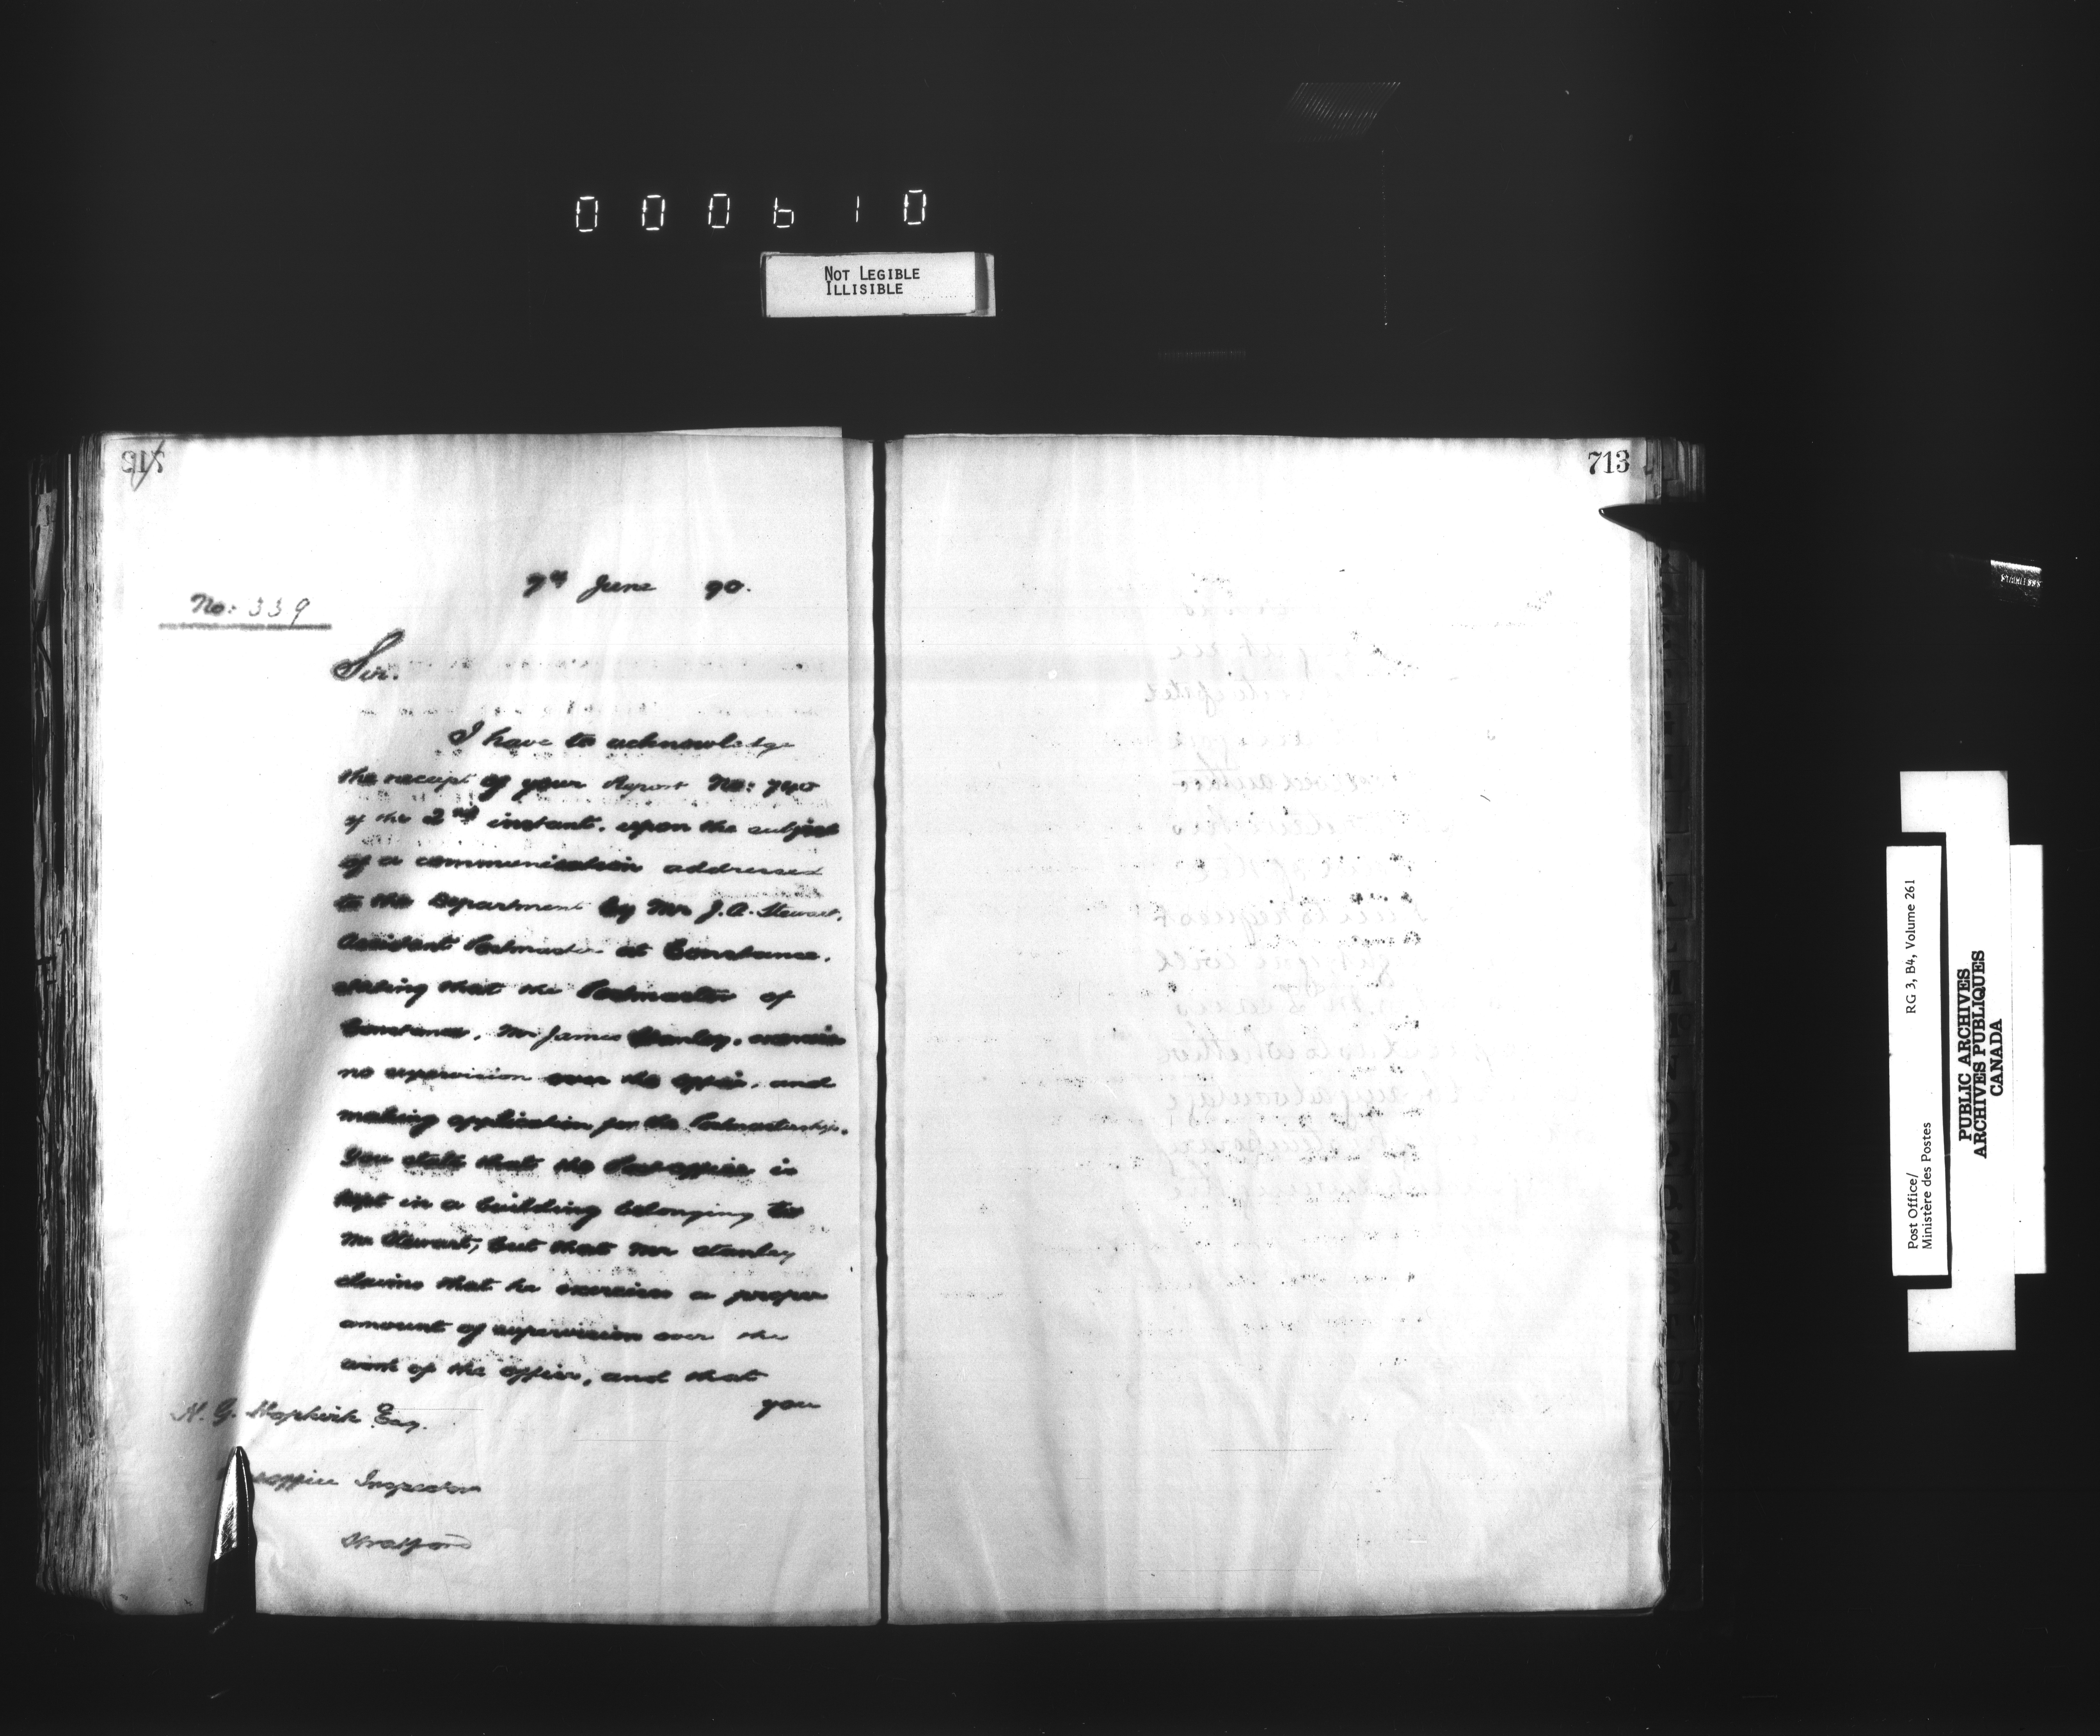 000610
NOT LEGIBLE
ILLISIBLE
713
7th June 90.
No: 339
Sir.
I have to acknowledge
the receipt of your Report No: 740
of the 2nd instant, upon the subject
of a communication addressed
to the Department by Mr J. A. Stewart,
Assistant Postmaster at Constance,
stating that the Postmaster of
Constance, Mr James Stanley, exercises
no supervision over the office, and
making application for the Postmastership.
You state that the Post office is
kept in a building belonging to
Mr Stewart, but that Mr Stanley
claims that he exercises a proper
amount of supervision over the
work of the office, and that
you
H. G. Hopkirk Esq.
office Inspector
Stratford
713
Post Office/
Ministère des Postes
RG 3, B4, Volume 261
PUBLIC ARCHIVES
ARCHIVES PUBLIQUES
CANADA